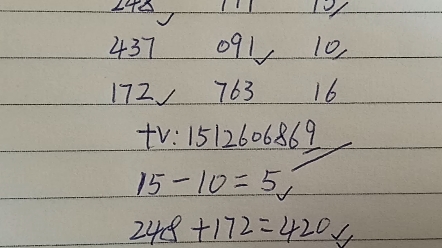 248 111 15
437 091 10
172 763 16
tv: 1512606869
15-10=5
248+172=420